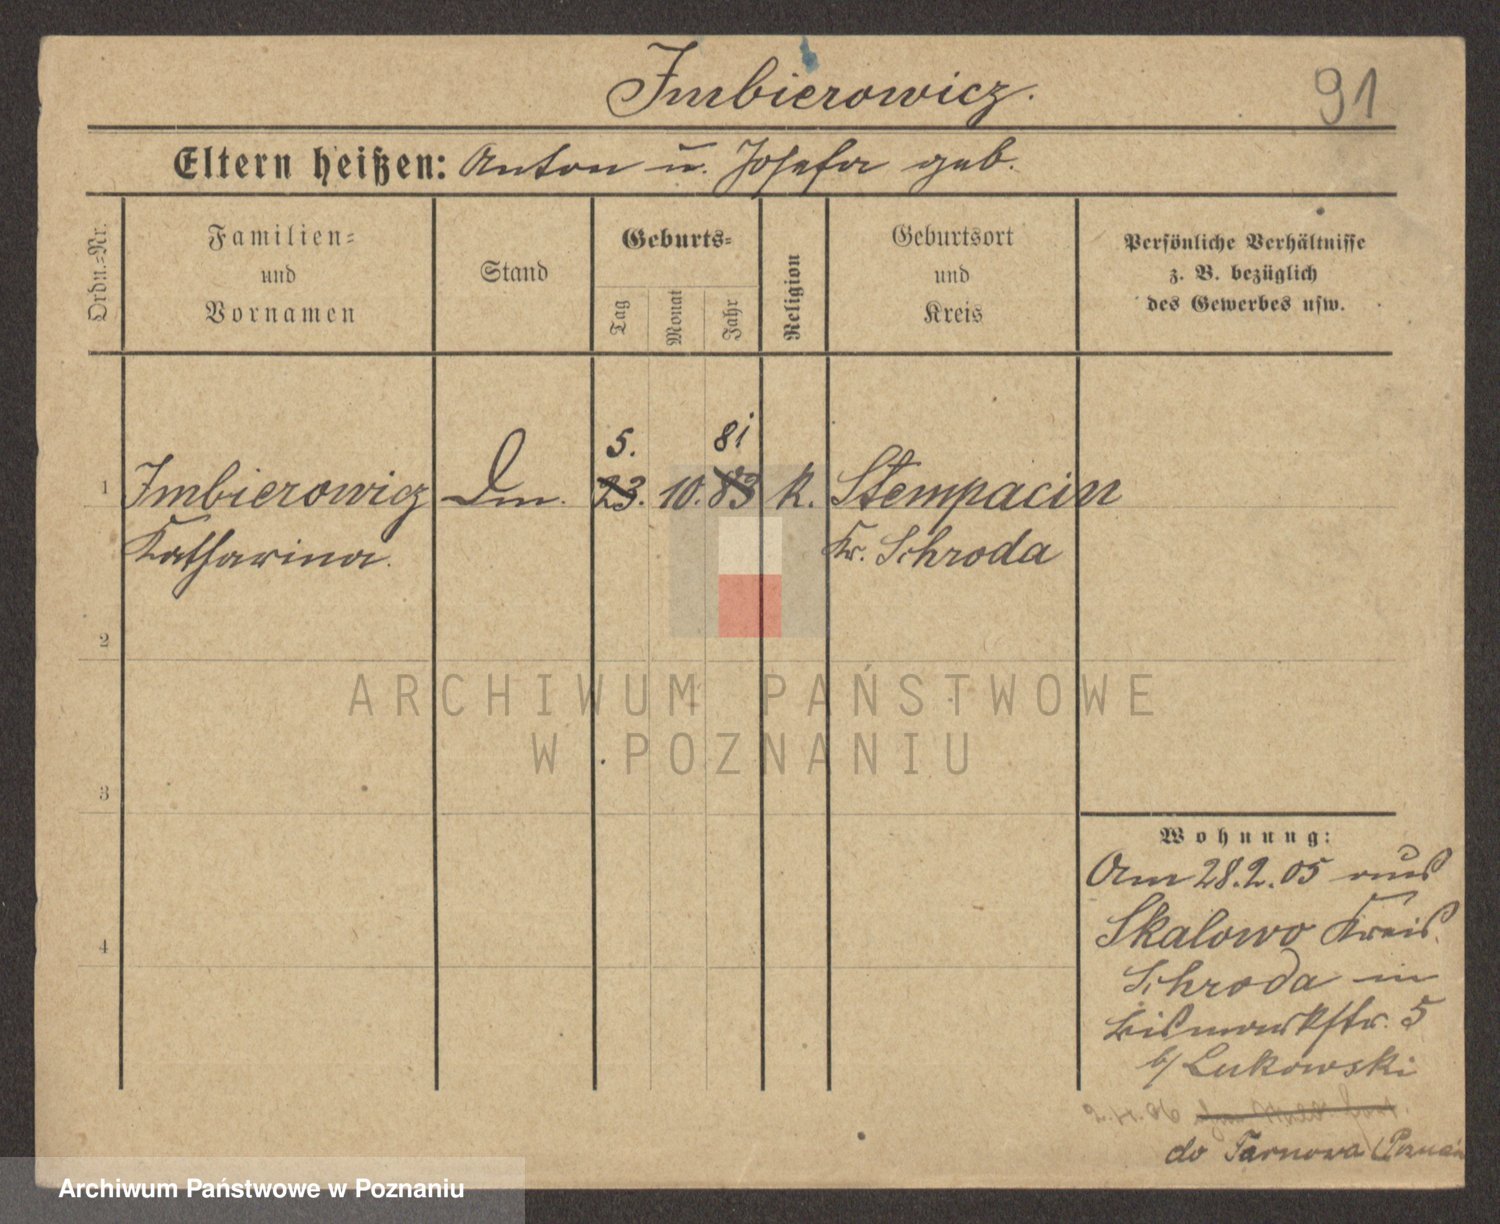 Imbierowicz.
91
Eltern heißen: Anton u. Josefa geb.
Ordn.=Nr.
Familien=
und
Vornamen
Stand
Geburts=
Tag
Monat
Jahr
Religion
Geburtsort
und
Kreis
Persönliche Verhältnisse
z. B. bezüglich
des Gewerbes usw.
5. 81
1 Imbierowicz Dm. 23. 10. 83 K. Stempocin
Katharina. Kr. Schroda
2
3
4
Wohnung:
Am 28.2.05 aus
Skalowo Kreis
Schroda in
Bismarckstr. 5
b/ Lukowski
do Tarnowa (Poznań
ARCHIWUM PAŃSTWOWE
W POZNANIU
Archiwum Państwowe w Poznaniu